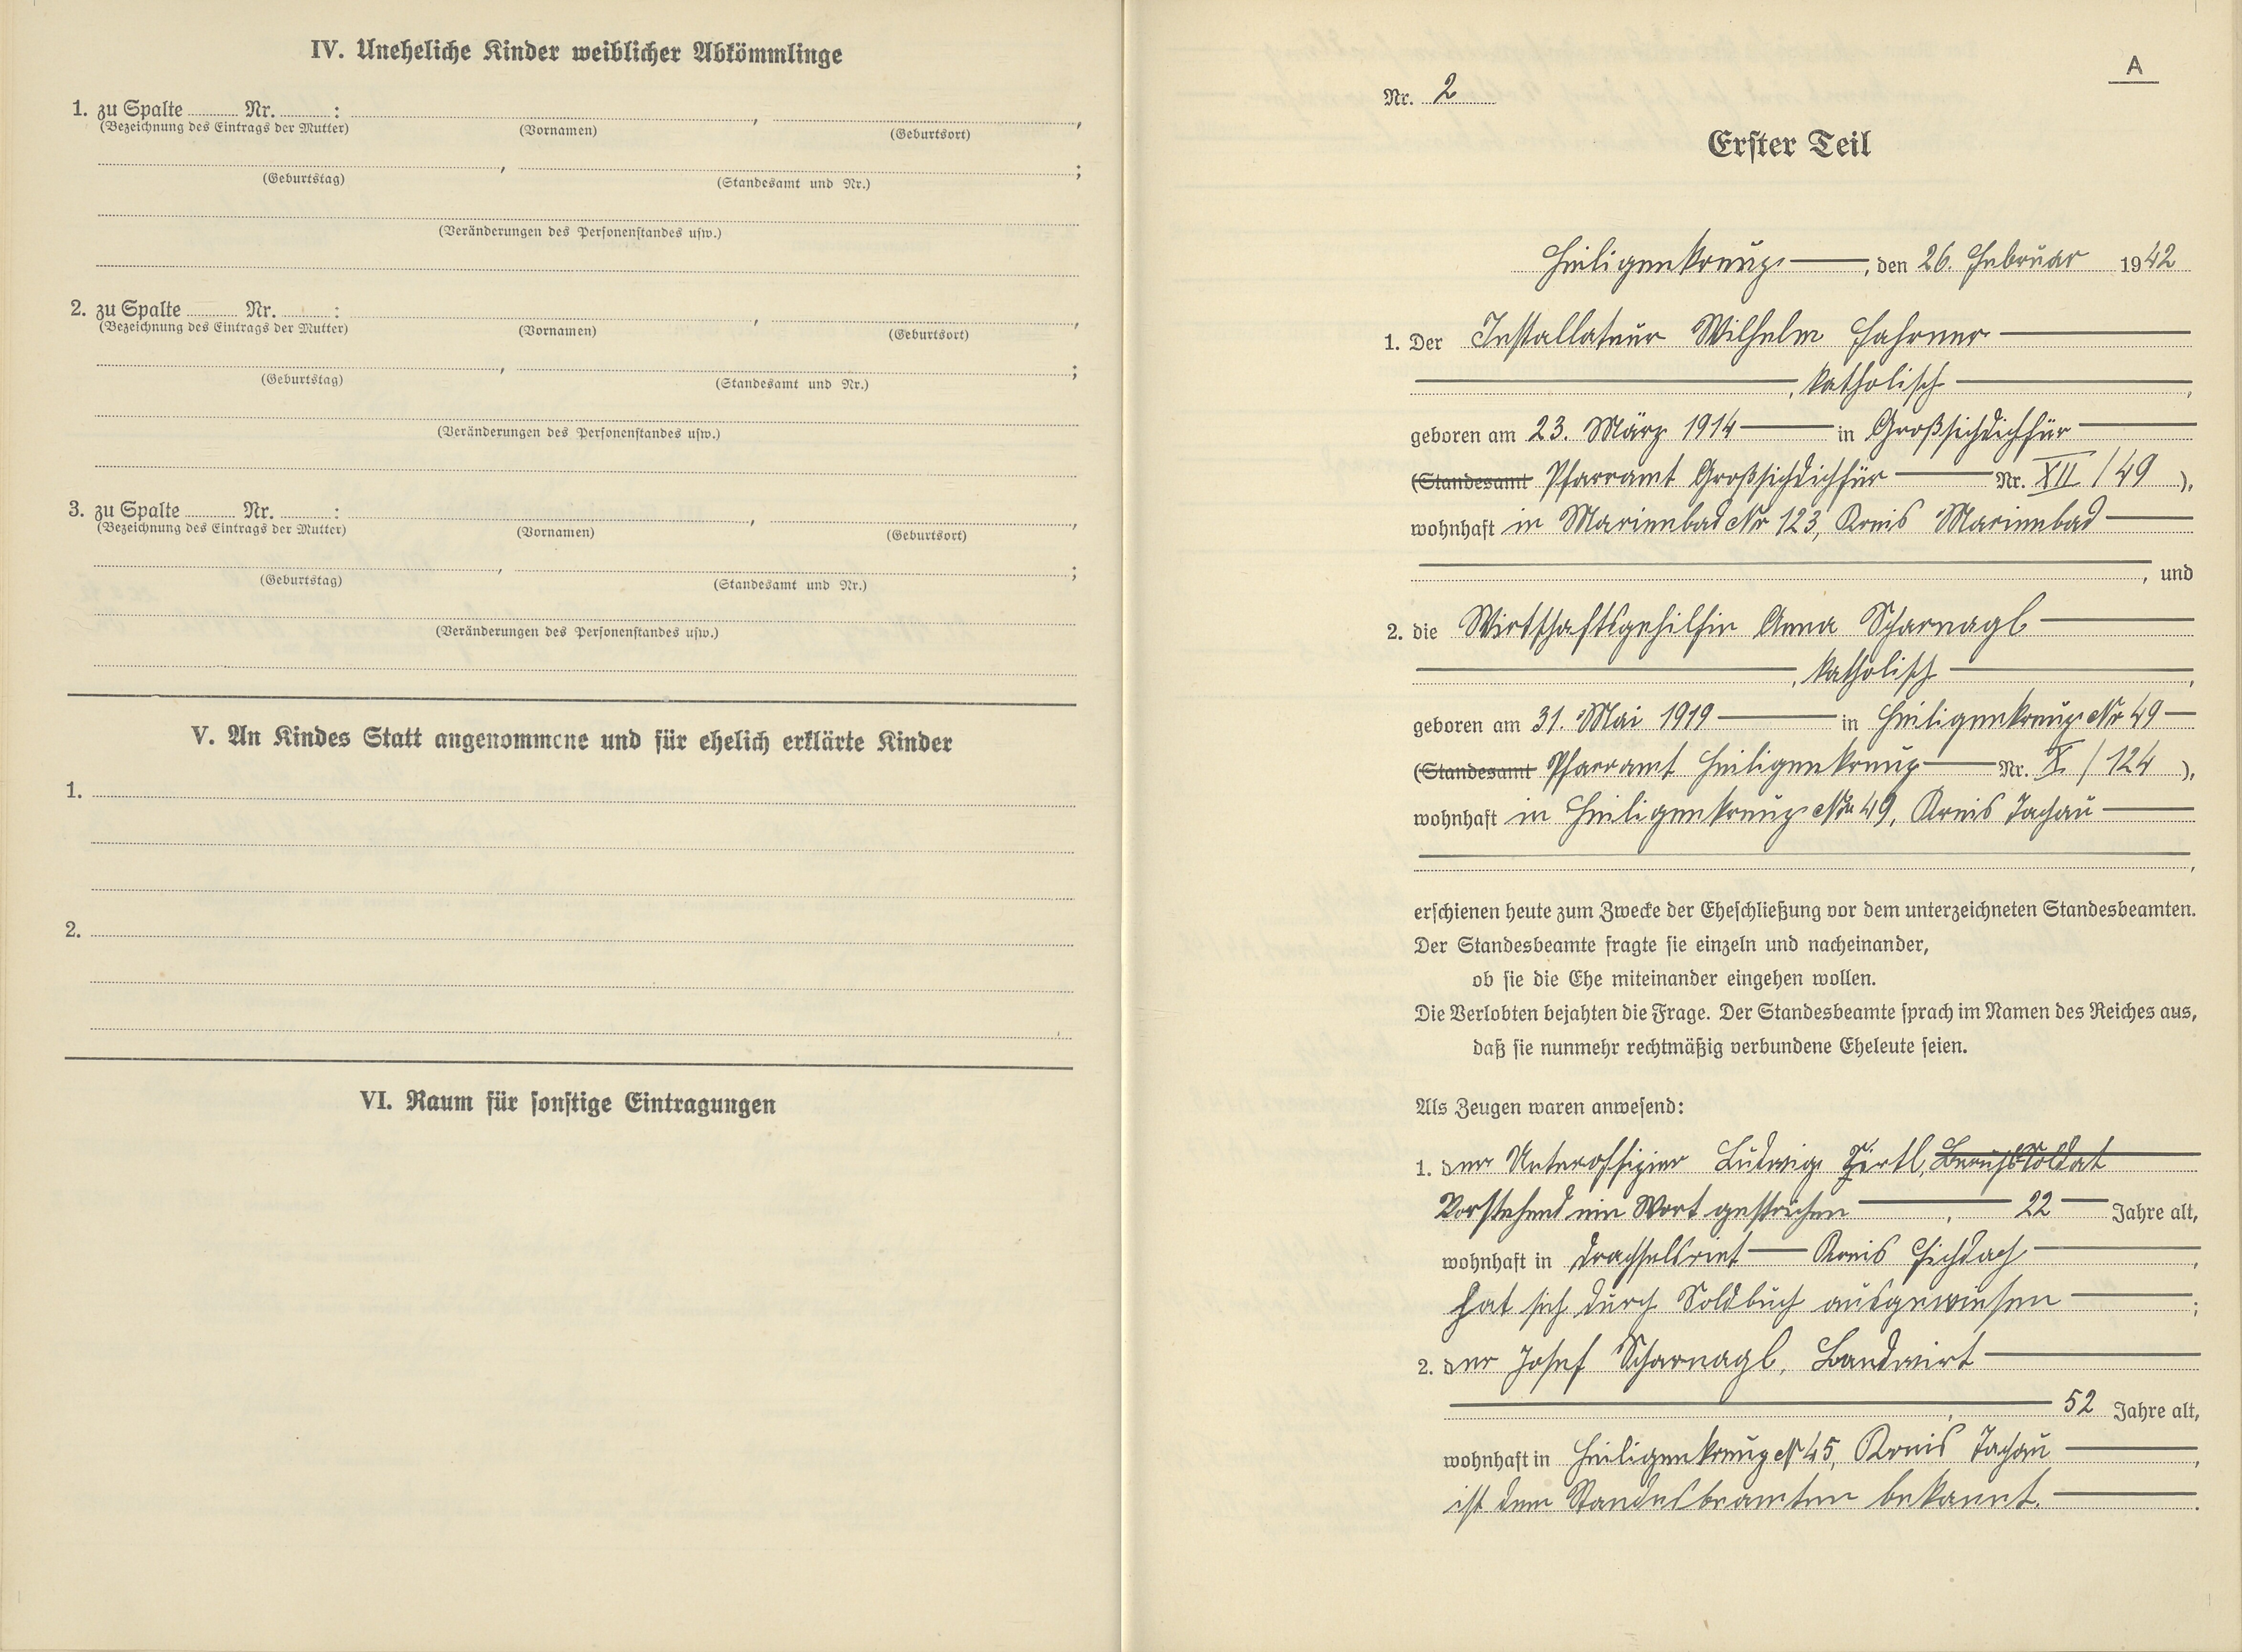 IV. Uneheliche Kinder weiblicher Abkömmlinge
1. zu Spalte ........ Nr. ........ : , ,
(Bezeichnung des Eintrags der Mutter) (Vornamen) (Geburtsort)
, ;
(Geburtstag) (Standesamt und Nr.)
(Veränderungen des Personenstandes usw.)
2. zu Spalte ........ Nr. ........ : , ,
(Bezeichnung des Eintrags der Mutter) (Vornamen) (Geburtsort)
, ;
(Geburtstag) (Standesamt und Nr.)
(Veränderungen des Personenstandes usw.)
3. zu Spalte ........ Nr. ........ : , ,
(Bezeichnung des Eintrags der Mutter) (Vornamen) (Geburtsort)
, ;
(Geburtstag) (Standesamt und Nr.)
(Veränderungen des Personenstandes usw.)
V. An Kindes Statt angenommene und für ehelich erklärte Kinder
1.
2.
VI. Raum für sonstige Eintragungen
A
Nr. 2
Erster Teil
Heiligenkreuz, den 26. Februar 1942
1. Der Installateur Wilhelm Fahrner
, katholisch,
geboren am 23. März 1914 in Großsichdichfür
(Standesamt Pfarramt Großsichdichfür Nr. XII / 49 ),
wohnhaft in Marienbad Nr 123, Kreis Marienbad
, und
2. die Wirtschaftsgehilfin Anna Scharnagl
, katholisch,
geboren am 31. Mai 1919 in Heiligenkreuz Nr 49
(Standesamt Pfarramt Heiligenkreuz Nr. X. / 124 ),
wohnhaft in Heiligenkreuz Nr 49, Kreis Tachau
,
erschienen heute zum Zwecke der Eheschließung vor dem unterzeichneten Standesbeamten.
Der Standesbeamte fragte sie einzeln und nacheinander,
ob sie die Ehe miteinander eingehen wollen.
Die Verlobten bejahten die Frage. Der Standesbeamte sprach im Namen des Reiches aus,
daß sie nunmehr rechtmäßig verbundene Eheleute seien.
Als Zeugen waren anwesend:
1. der Unteroffizier Ludwig Zirtl, Berufssoldat
Vorstehend ein Wort gestrichen , 22 Jahre alt,
wohnhaft in Drachselsriet Kreis Fichdach,
hat sich durch Soldbuch ausgewiesen ;
2. der Josef Scharnagl, Landwirt
, 52 Jahre alt,
wohnhaft in Heiligenkreuz N 45, Kreis Tachau,
ist dem Standesbeamten bekannt.